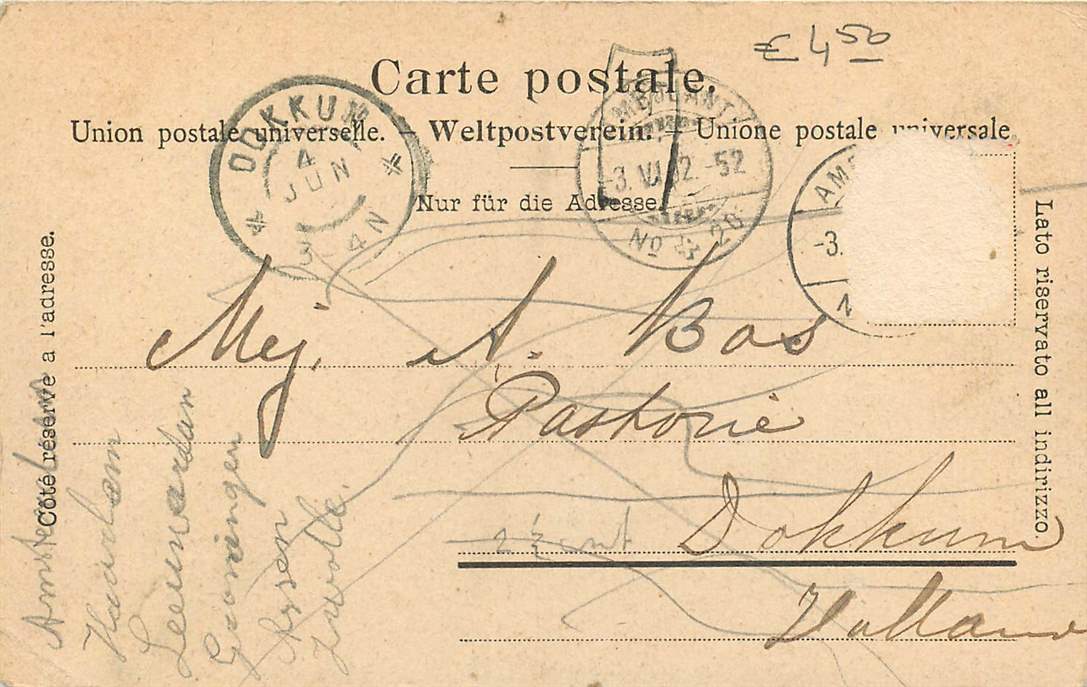 € 4 50
Carte postale.
Union postale universelle. — Weltpostverein. — Unione postale universale
Nur für die Adresse.
Côté réservé à l'adresse.
Lato riservato all indirizzo.
DOKKUM
4 JUN
4N
AMBULANT
-3. VI 02.-52
No 4 20
AM
-3.
N
Mej. A. Bos
Pastorie
Dokkum
Holland
2 ½ cnt
Amsterdam
Haarlem
Leeuwardan
Groningen
Assen
Zwolle.